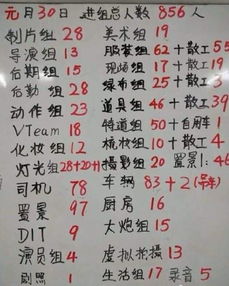 元月30日 进组总人数 856人
制片组 28 美术组 19
导演组 13 服装组 62+散工 55
后期组 15 现场组 17+散工 19
后勤组 28 绿布组 25+散工 3
动作组 23 道具组 46+散工 39
VTeam 18 特道组 50+自用车 1
化妆组 12 梳妆组 10+散工 4
灯光组 28+20+11 摄影组 20 置景1:46
司机 78 车辆 83+2(吊车)
置景 97 厨房 16
DIT 9 大炮组 15
演员组 4 虚拟拍摄 13
剧照 1 生活组 17 录音 5